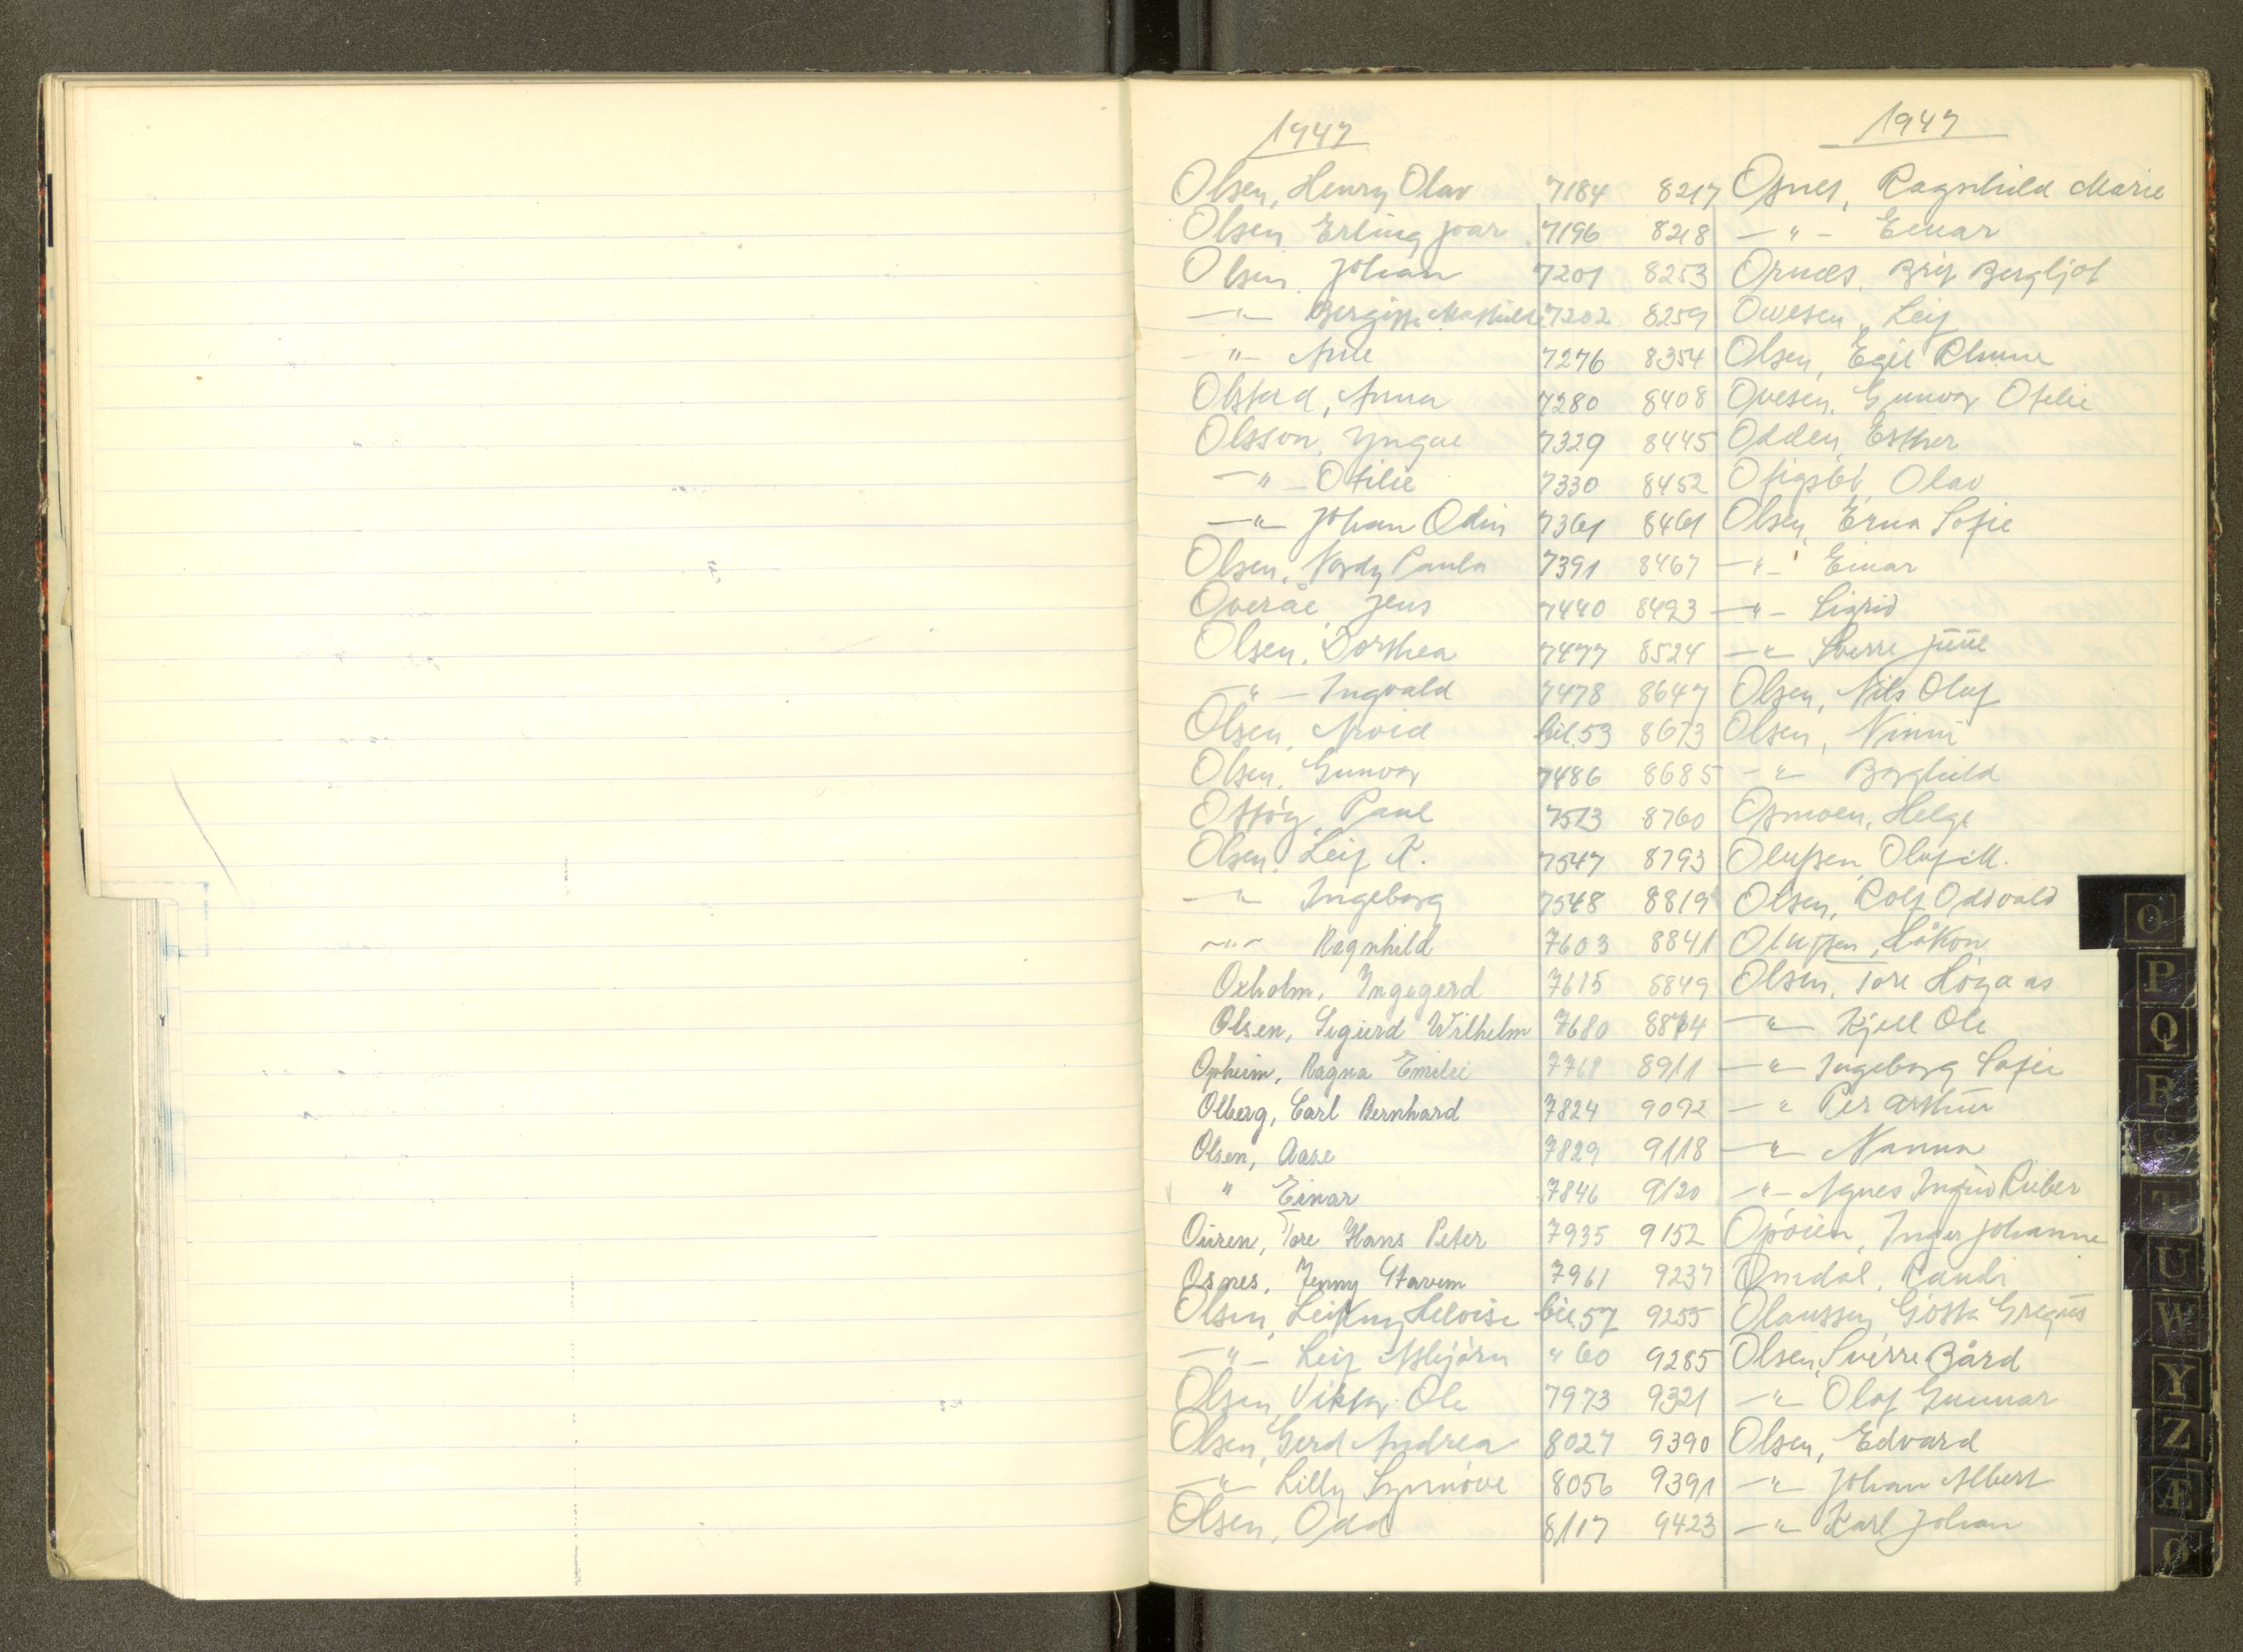 1947 1947
Olsen, Henry Olav 7184 8217 Osnes, Ragnhild Marie
Olsen Erling Joar 7196 8218 —"— Einar
Olsen, Johan 7201 8253 Ornæs, Brit Bergljot
—"— 7202 8259 Owesen, Leif
—"— Arne 7276 8354 Olsen, Egil
Olstad, Anna 7280 8408 Ovesen, Gunvor Otelie
Olsson, Yngve 7329 8445 Odden, Esther
—"— Otilie 7330 8452 Olav
—"— Johan Odin 7361 8461 Olsen, Erna Sofie
Olsen, Nordy Paula 7391 8467 —"— Einar
Overåe Jens 7440 8493 —"— Sigrid
Olsen, Dorthea 7477 8524 —"— Sverre Juul
—"— Ingvald 7478 8647 Olsen, Nils Oluf
Olsen, Arvid bil. 53 8673 Olsen, Ninni
Olsen, Gunvor 7486 8685 —"— Borghild
Paul 7513 8760 Osmoen, Helge
Olsen, Leif K. 7547 8793 Olufsen, Oluf M.
—"— Ingeborg 7548 8819 Olsen, Rolf Oddvald
—"— Ragnhild 7603 8841 Olufsen, Håkon
Oxholm, Ingegerd 7615 8849 Olsen, Tore Høgaas
Olsen, Sigurd Wilhelm 7680 8874 —"— Kjell Ole
Opheim, Ragna Emilie 7768 8911 —"— Ingeborg Sofie
Olberg, Carl Bernhard 7824 9092 —"— Per Arthur
Olsen, Aase 7829 9118 —"— Nanna
" Einar 7846 9120 —"— Agnes Rieber
Ouren, Tore Hans Peter 7935 9152 Opøien, Inger Johanne
Osnes, Jenny Stavem 7961 9237 Omdal, Randi
Olsen, Leikny Heloise bil. 57 9255 Olaussen Gösta
—"— Leif Asbjørn " 60 9285 Olsen, Sverre Bård
Olsen, Viktor Ole 7973 9321 —"— Olaf Gunnar
Olsen, Gerd Andrea 8027 9390 Olsen, Edvard
—"— Lilly Synnøve 8056 9391 —"— Johan Albert
Olsen, Odd 8117 9423 —"— Karl Johan
O
P
Q
R
S
T
U
W
Y
Z
Æ
Ø